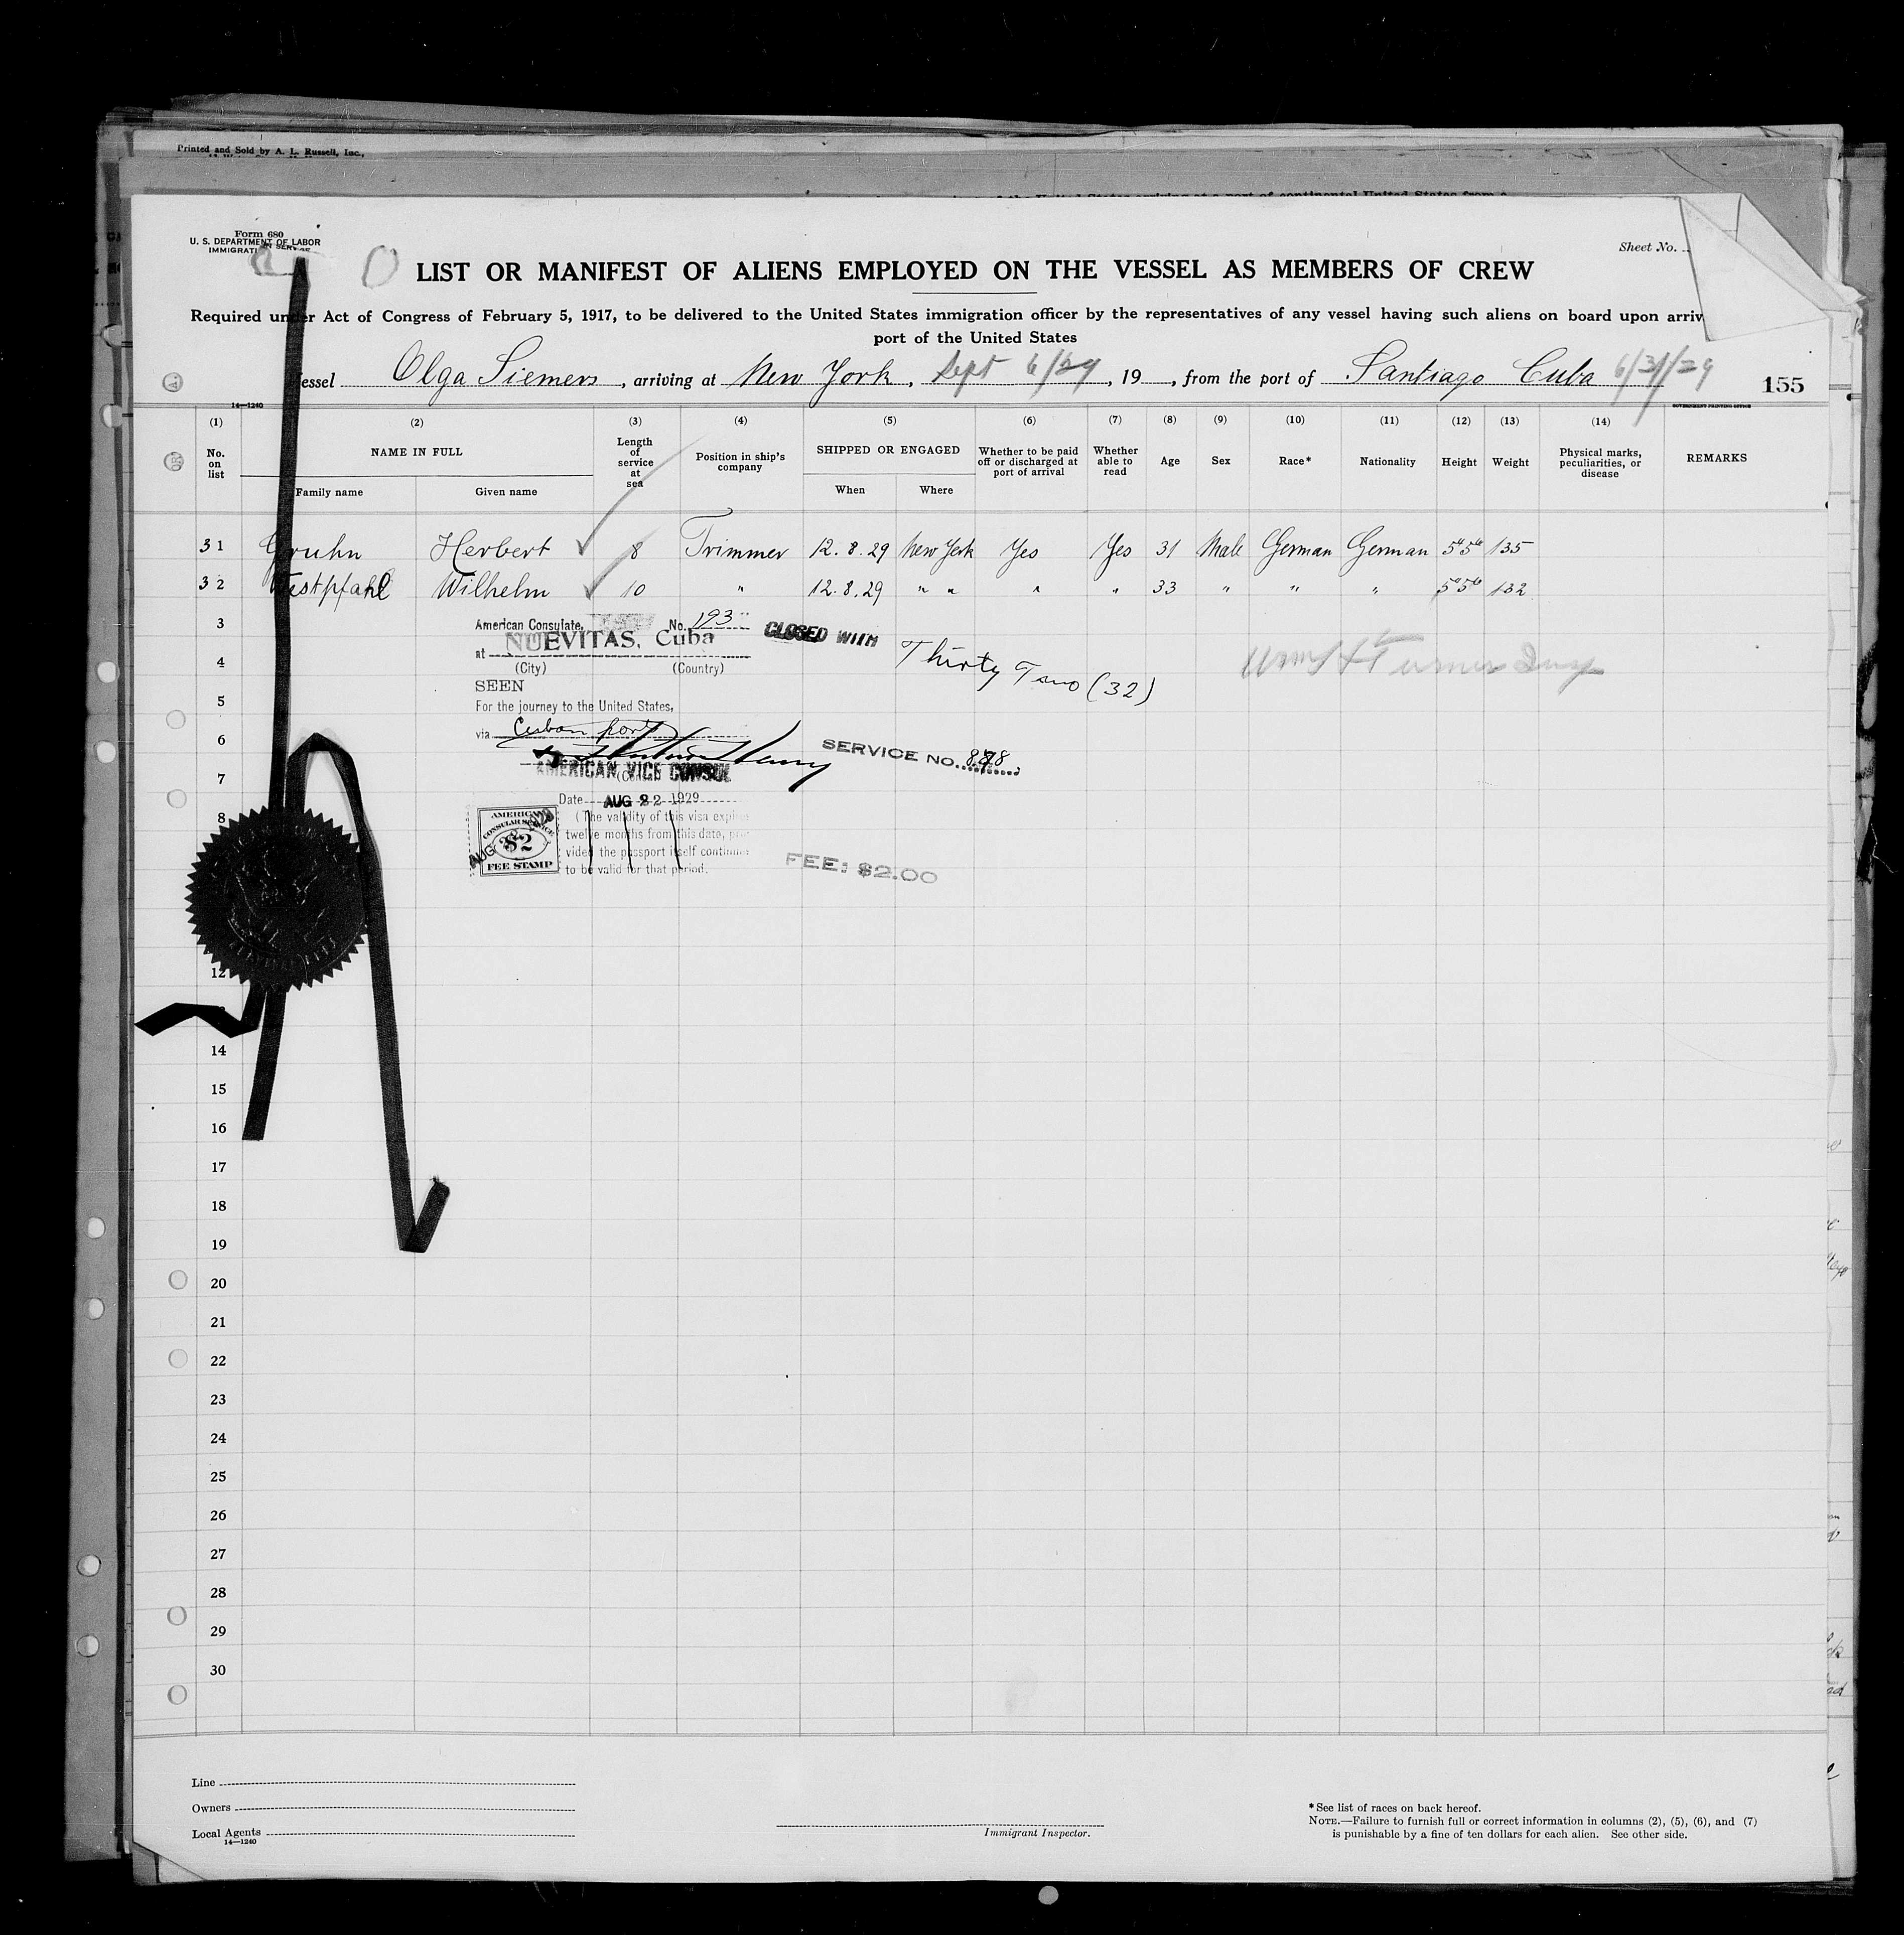 Printed and Sold by A. L. Russell, Inc.,
Form 680
U. S. DEPARTMENT OF LABOR
IMMIGRATION SERVICE
Sheet No.
LIST OR MANIFEST OF ALIENS EMPLOYED ON THE VESSEL AS MEMBERS OF CREW
Required under Act of Congress of February 5, 1917, to be delivered to the United States immigration officer by the representatives of any vessel having such aliens on board upon arriv
port of the United States
essel Olga Siemers, arriving at New York, Sept 6/29, 19 , from the port of Santiago Cuba
155
14—1240
GOVERNMENT PRINTING OFFICE
(1) (2) (3) (4) (5) (6) (7) (8) (9) (10) (11) (12) (13) (14)
No. on list NAME IN FULL Length of service at sea Position in ship's company SHIPPED OR ENGAGED Whether to be paid off or discharged at port of arrival Whether able to read Age Sex Race* Nationality Height Weight Physical marks, peculiarities, or disease REMARKS
Family name Given name When Where
31 Gruhn Herbert 8 Trimmer 12.8.29 New York Yes Yes 31 Male German German 5" 5" 135
32 Westpfahl Wilhelm 10 " 12.8.29 " " " " 33 " " " 5" 5" 132
3
American Consulate, No. 193
at NUEVITAS, Cuba
CLOSED WITH
Thirty Two (32)
4
(City) (Country)
SEEN
5
For the journey to the United States,
6
via Cuban port
SERVICE NO. 878
7
AMERICAN VICE CONSUL
Date AUG 22 1929
8
(The validity of this visa expires
twelve months from this date, pro-
vided the passport itself continues
to be valid for that period.
AMERICAN
CONSULAR SERVICE
$2
FEE STAMP
FEE: $2.00
12
14
15
16
17
18
19
20
21
22
23
24
25
26
27
28
29
30
Line
Owners
Local Agents
14—1240
Immigrant Inspector.
*See list of races on back hereof.
NOTE.—Failure to furnish full or correct information in columns (2), (5), (6), and (7)
is punishable by a fine of ten dollars for each alien. See other side.